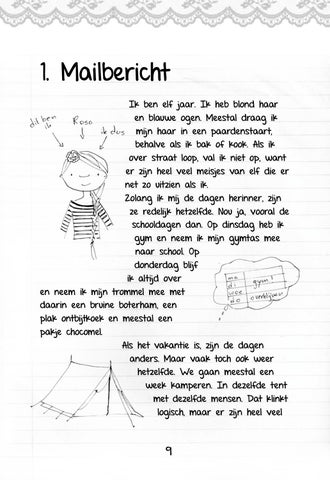 1. Mailbericht
dit ben
Rosa
ik dus
Ik ben elf jaar. Ik heb blond haar
en blauwe ogen. Meestal draag ik
mijn haar in een paardenstaart,
behalve als ik bak of kook. Als ik
over straat loop, val ik niet op, want
er zijn heel veel meisjes van elf die er
net zo uitzien als ik.
Zolang ik mij de dagen herinner, zijn
ze redelijk hetzelfde. Nou ja, vooral de
schooldagen dan. Op dinsdag heb ik
gym en neem ik mijn gymtas mee
naar school. Op
donderdag blijf
ik altijd over
en neem ik mijn trommel mee met
daarin een bruine boterham, een
plak ontbijtkoek en meestal een
pakje chocomel.
ma
di gym!
woe
do overblijven
Als het vakantie is, zijn de dagen
anders. Maar vaak toch ook weer
hetzelfde. We gaan meestal een
week kamperen. In dezelfde tent
met dezelfde mensen. Dat klinkt
logisch, maar er zijn heel veel
9